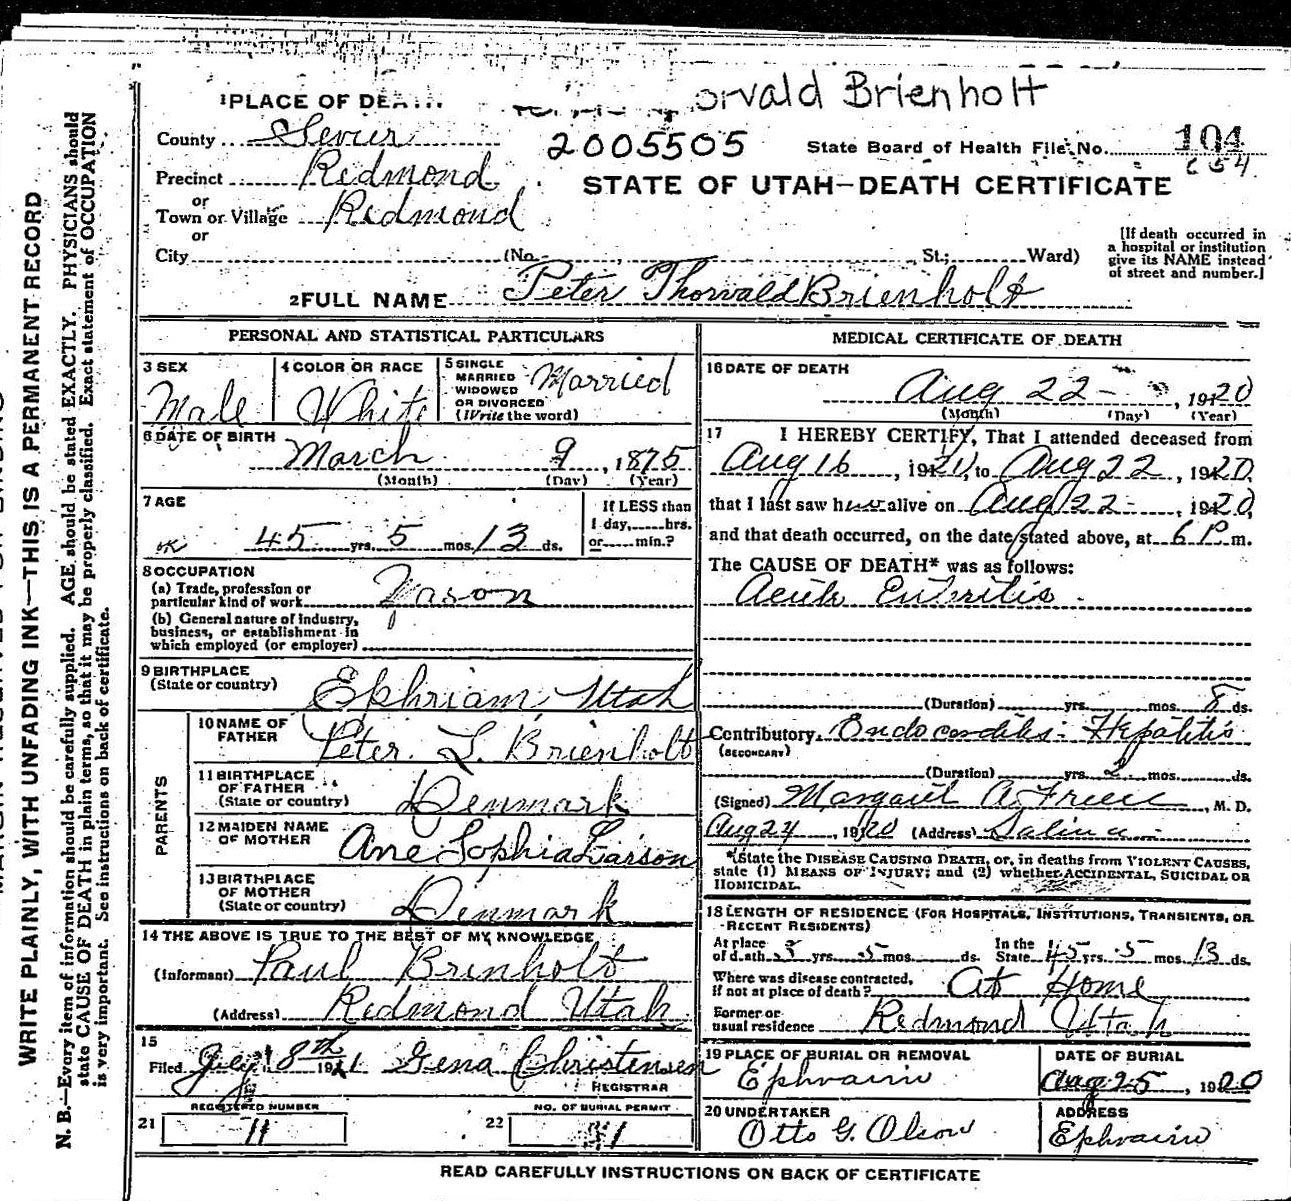 orvald Brienholt
1 PLACE OF DEATH
County Sevier
2005505
State Board of Health File No. 104
654
Precinct Redmond
STATE OF UTAH—DEATH CERTIFICATE
or
Town or Village Redmond
or
City (No. , St.; Ward)
[If death occurred in
a hospital or institution
give its NAME instead
of street and number.]
2 FULL NAME Peter Thorvald Brienholt
PERSONAL AND STATISTICAL PARTICULARS
3 SEX
Male
4 COLOR OR RACE
White
5 SINGLE
MARRIED
WIDOWED
OR DIVORCED
(Write the word)
Married
6 DATE OF BIRTH
March 9, 1875
(Month) (Day) (Year)
7 AGE
45 yrs. 5 mos. 13 ds.
If LESS than
1 day, hrs.
or min.?
8 OCCUPATION
(a) Trade, profession or
particular kind of work
(b) General nature of Industry,
business, or establishment in
which employed (or employer)
9 BIRTHPLACE
(State or country)
Ephriam Utah
PARENTS
10 NAME OF
FATHER
Peter. L. Brienholt
11 BIRTHPLACE
OF FATHER
(State or country)
Denmark
12 MAIDEN NAME
OF MOTHER
Ane Sophia Larson
13 BIRTHPLACE
OF MOTHER
(State or country)
Denmark
14 THE ABOVE IS TRUE TO THE BEST OF MY KNOWLEDGE
(Informant) Paul Brinholt
(Address) Redmond Utah
15
Filed 8th 1921 Gena Christensen
REGISTRAR
REGISTERED NUMBER
21 11
NO. OF BURIAL PERMIT
22
MEDICAL CERTIFICATE OF DEATH
16 DATE OF DEATH
Aug 22 - , 1920
(Month) (Day) (Year)
17 I HEREBY CERTIFY, That I attended deceased from
Aug 16 , to Aug 22 , 1920
that I last saw alive on Aug 22 - , 1920,
and that death occurred, on the date stated above, at 6 P m.
The CAUSE OF DEATH* was as follows:
Acute Enteritis
(Duration) yrs. mos. 8 ds.
Contributory Endocarditis - Hepatitis
(SECONDARY)
(Duration) yrs. 2 mos. ds.
(Signed) A. Freece, M. D.
Aug 24, 1920 (Address) Salina
*State the DISEASE CAUSING DEATH, or, in deaths from VIOLENT CAUSES,
state (1) MEANS OF INJURY; and (2) whether ACCIDENTAL, SUICIDAL OR
HOMICIDAL.
18 LENGTH OF RESIDENCE (FOR HOSPITALS, INSTITUTIONS, TRANSIENTS, OR
RECENT RESIDENTS)
At place
of death yrs. 5 mos. ds.
In the
State 45 yrs. 5 mos. 13 ds.
Where was disease contracted,
if not at place of death? At Home
Former or
usual residence Redmond Utah
19 PLACE OF BURIAL OR REMOVAL
Ephraim
DATE OF BURIAL
Aug 25, 1920
20 UNDERTAKER
Otto G. Olson
ADDRESS
Ephraim
READ CAREFULLY INSTRUCTIONS ON BACK OF CERTIFICATE
WRITE PLAINLY, WITH UNFADING INK—THIS IS A PERMANENT RECORD
N. B.—Every item of information should be carefully supplied. AGE should be stated EXACTLY. PHYSICIANS should
state CAUSE OF DEATH in plain terms, so that it may be properly classified. Exact statement of OCCUPATION
is very important. See instructions on back of certificate.